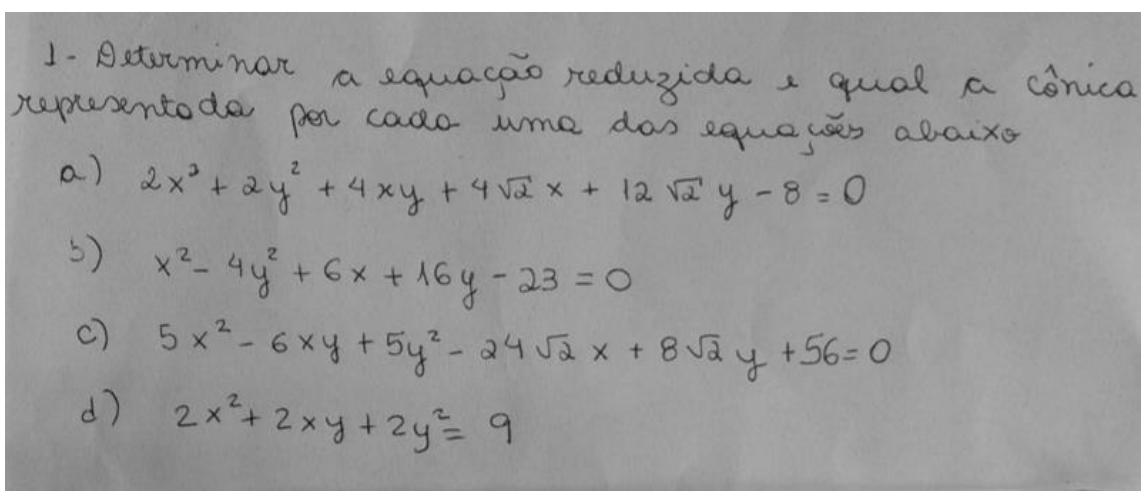 1- Determinar a equação reduzida e qual a cônica
representada por cada uma das equações abaixo
a) 2x² + 2y² + 4xy + 4√2 x + 12√2 y - 8 = 0
b) x² - 4y² + 6x + 16y - 23 = 0
c) 5x² - 6xy + 5y² - 24√2 x + 8√2 y + 56 = 0
d) 2x² + 2xy + 2y² = 9